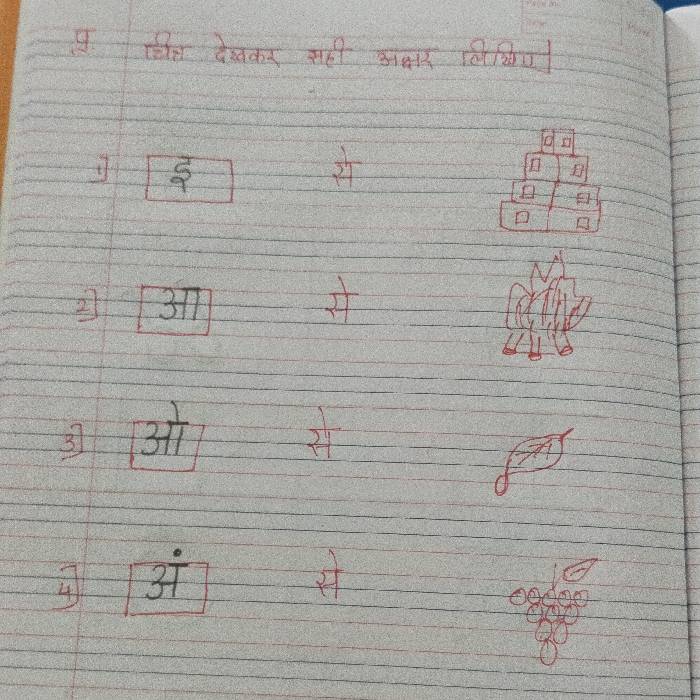 प्र. चित्र देखकर सही अक्षर लिखिए|
1] इ से
2] आ से
3] ओ से
4] अं से